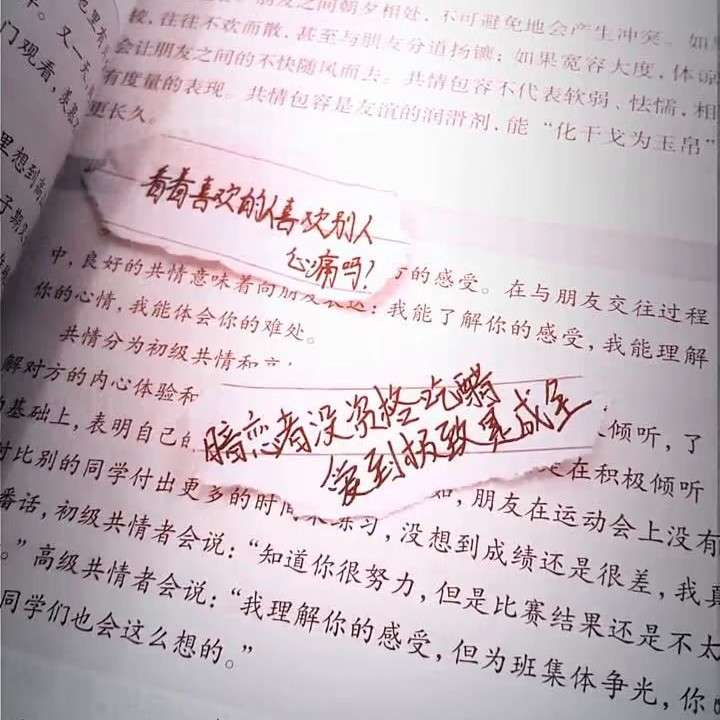 朋友之间朝夕相处，不可避免地会产生冲突。如
较，往往不欢而散，甚至与朋友分道扬镳；如果宽容大度，体谅
会让朋友之间的不快随风而去。共情包容不代表软弱、怯懦，相
有度量的表现。共情包容是友谊的润滑剂，能“化干戈为玉帛”
更长久。
看看喜欢的人喜欢别人
心痛吗？
的感受。在与朋友交往过程
中，良好的共情意味着向朋友表达：我能了解你的感受，我能理解
你的心情，我能体会你的难处。
共情分为初级共情和
解对方的内心体验和
暗恋者没资格吃醋
爱到极致是成全
倾听，了
的基础上，表明自己的
在积极倾听
对比别的同学付出更多的时间来练习，没想到成绩还是很差，我真
朋友在运动会上没有
番话，初级共情者会说：“知道你很努力，但是比赛结果还是不太
。”高级共情者会说：“我理解你的感受，但为班集体争光，你
同学们也会这么想的。”
又一天
门观看，
里想到
子期